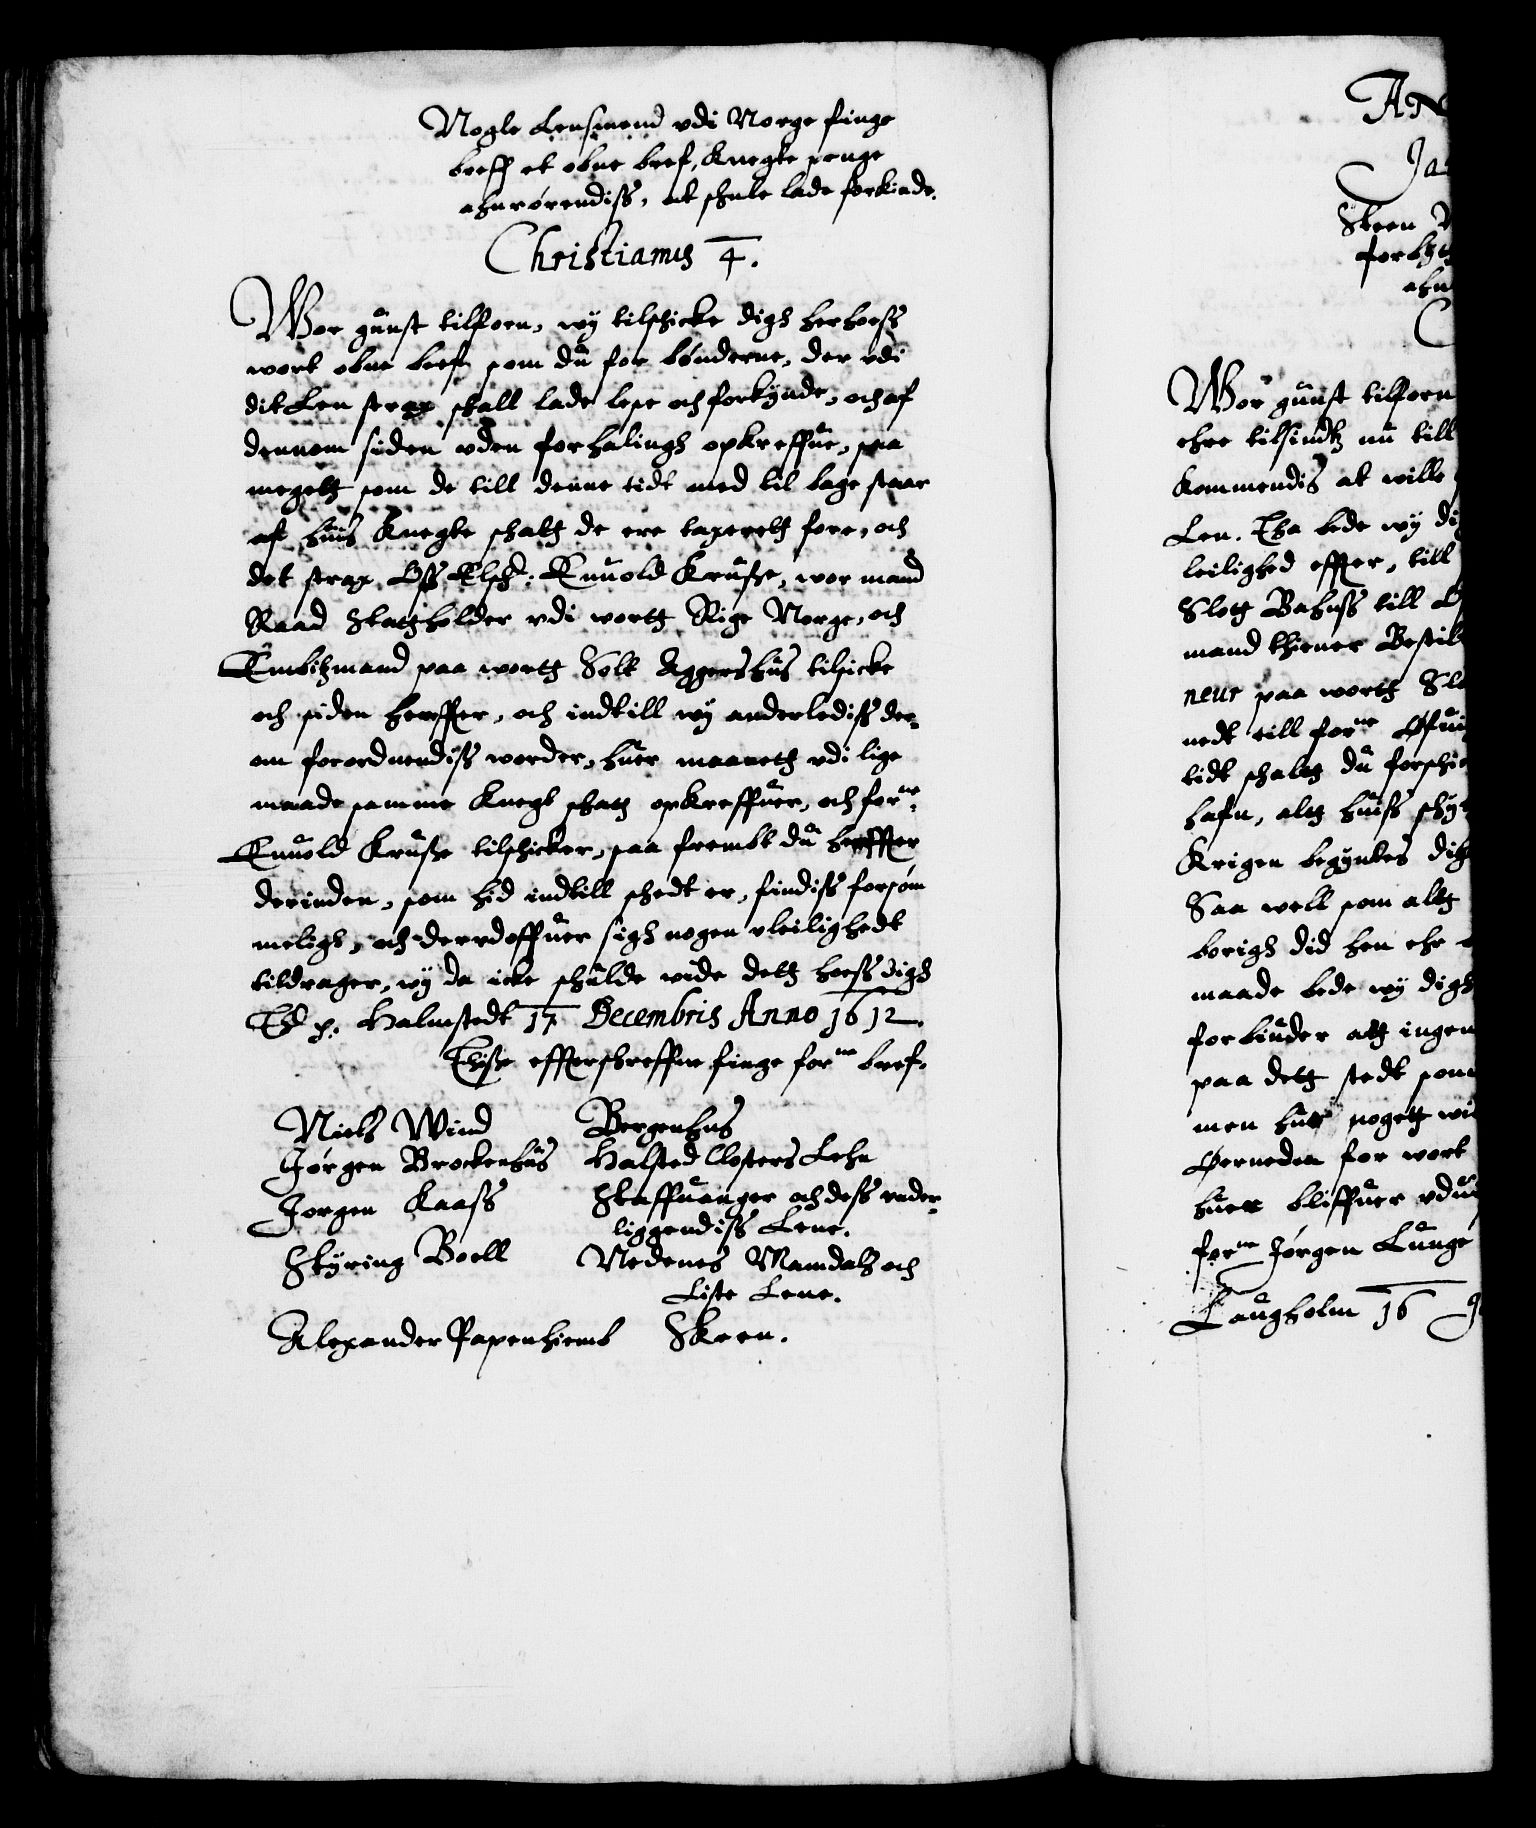 Nogle Lensmend vdi Norge finge
breff et obne bref, Knegte penge
ahnrørendiss, at schule lade forkinde.
Christianus 4.
Wor gunst tilforn, wy tilschicke digh herhoess
wort obne breff som du for bønderne, der vdi
dit Len strax schall lade lese och forkynde, och af
dennom siden vden forhalingh opkreffue, saa
megett som de till denne tidt med til bage staar
aff huis Knegte schatt de ere taxerett fore, och
det strax Oss Elsch: Enuold Kruse, wor mand
Raad Statholder vdi wortt Rige Norge, och
Embitzmand paa wortt Slott Aggershus tilsicke
och siden hereffter, och indtill wy anderlediss der-
om forordnendiss worder, huer maanett vdi lige
maade samme Knegt schatt opkreffuer, och forne
Enuold Kruse tilschicker, saa frembt du hereffter
derinden, som hid indtill schedt er, findiss forsøm
meligh, och derudoffuer sigh nogen vleilighedt
tildrager, wy da icke schulde wide dett hoess digh
Ex p. Halmstedt 17 Decembris Anno 1612.
Thisse effterschreffne finge forne bref.
Niels Wind Bergenhus
Jørgen Brockenhus Halsted Closters Lehn
Jorgen Kaass Staffuanger och dess vnder-
liggendiss Lene.
Styring Boell Nedenes Mamdals och
Liste Lene.
Alexander Papenhiemb Skeen.
AN
Ja
Skeen
forby
ahn
C
Wor gunst tilforn
ehre tilsindtz nu till
kommendis at wille
Len. Tha bede wy di
leilighed effter, till
Slott Bahuss till
mand thiener Bestil
neur paa wortt Slo
nedt till forne
tidt schaltt du forschi
hafn, altt huiss schy
Krigen begyntes dit
Saa well som altt
borigh did hen ehr
maade bede wy digh
forbiuder att ingen
paa dett stedt som
men huer nogett wi
Øerneden for wort
huer bliffuer vdu
forne Jørgen Lunge
Laugholm 16 J